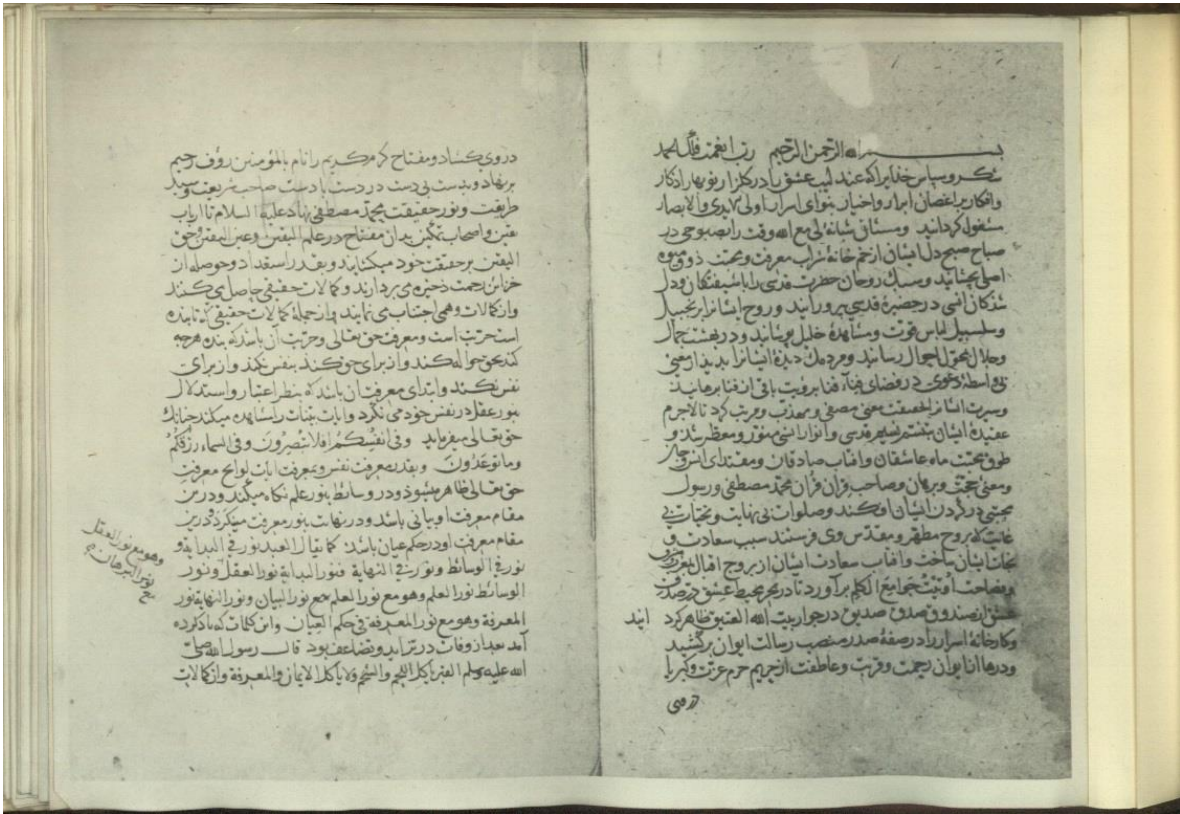 بسم الله الرحمن الرحیم رب انعمت فلک الحمد
شکر و سپاس خدایرا که عندلیب عشق را در گلزار نوبهار اذکار
و افکار بر اغصان ابرار و اخیار بنوای اسرار اولی الایدی والابصار
مشغول گردانید و مشتاق لی مع الله وقت را بصبوحی در
صباح صبح دل ایشان از خم خانهٔ شراب معرفت و محبت ذوق میوه
اصلی بچشانید و روحان حضرت قدسی را با شیفتگان و دل
شدگان انسی در حضیرهٔ قدسی بپرورانید و روح ایشانرا زنجبیل
و سلسبیل لباس قوت و مشاهدهٔ خلیل بپوشانید و در بهشت جمال
و جلال رسانید و مردمک دیدهٔ ایشانرا بدیدار معنی
بی واسطهٔ دعوی در فضای فنا برویت باقی از فنا برهانید
و سیرت ایشانرا معنی مصفی و مهذب و مرتب کرد تا لاجرم
عقیدهٔ ایشان بنسیم قدسی و انوار انسی منور و معطر شد و
طوق محبت ماه عاشقان و افتاب صادقان و مقتدای انس و جان
و معنی حجت و برهان و صاحب قران قرآن محمد مصطفی و رسول
مجتبی در گردن ایشان اوکند و صلوات بی نهایت و تحیات بی
غایت که بروح مطهر و مقدس وی فرستند سبب سعادت و
نجات ایشان ساخت و افتاب سعادت ایشان از بروج اقبال
و فصاحت اوتیت جوامع الکلم برآورد تا در بحر محیط عشق در صدف
عشق از صندوق صدق صدیق در جوار بیت الله العتیق ظاهر کرد
انید
و کارخانهٔ اسرار را در صفهٔ صدر منصب رسالت ایوان برکشید
و درها از ایوان رحمت و قربت و عاطفت از حریم حرم عزت و کبریا
در وی
در وی کشاد و مفتاح کرم کریم را نام بالمؤمنین رؤف رحیم
بر نهاد و بدست بی دست در دست با دست صاحب شریعت و سید
طریقت و نور حقیقت محمد مصطفی نهاد علیه السلام تا ارباب
یقین و اصحاب تمکین بدان مفتاح در علم الیقین و عین الیقین و حق
الیقین بر حقیقت خود میکشاید و بقدر استعداد و حوصله از
خزاین رحمت ذخیره می بردارند و کمالات حقیقی حاصل می کنند
و از کمالات وهمی اجتناب می نمایند و از جملهٔ کمالات حقیقی که تابنده
است حریت است و معرفت حق تعالی و حریت آن باشد که بنده هرچه
کند بحق حواله کند و از برای حق کند بنفس نکند و از برای
نفس نکند و ابتدای معرفت آن باشد که بنظر اعتبار و استدلال
بنور عقل در نفس خود می نگرد و ایات بینات را مشاهده میکند چنانک
حق تعالی میفرماید وفی انفسکم افلا تبصرون وفی السماء رزقکم
وما توعدون و بقدر معرفت نفس و بمعرفت ایات لوایح معرفت
حق تعالی ظاهر میشود و در وسائط بنور علم نگاه میکند و درین
مقام معرفت او بیانی باشد و در نهایت بنور معرفت مینکرد و درین
مقام معرفت او در حکم عیان باشد کما یقال العبد نور فی البدایة و
نور فی الوسائط و نور فی النهایة فنور البدایة نور العقل ونور
الوسائط نور العلم وهو مع نور العلم مع نور البیان ونور النهایة نور
المعرفة وهو مع نور المعرفة فی حکم العیان و این کلمات که یاد کرده
آمد بعد از وفات در تزاید و تضاعف بود قال رسول الله صلی
الله علیه وسلم القبر یاکل اللحم والشحم ولا یاکل الایمان والمعرفة و از کمالات
وهو مع نور العقل
مع نور البرهان